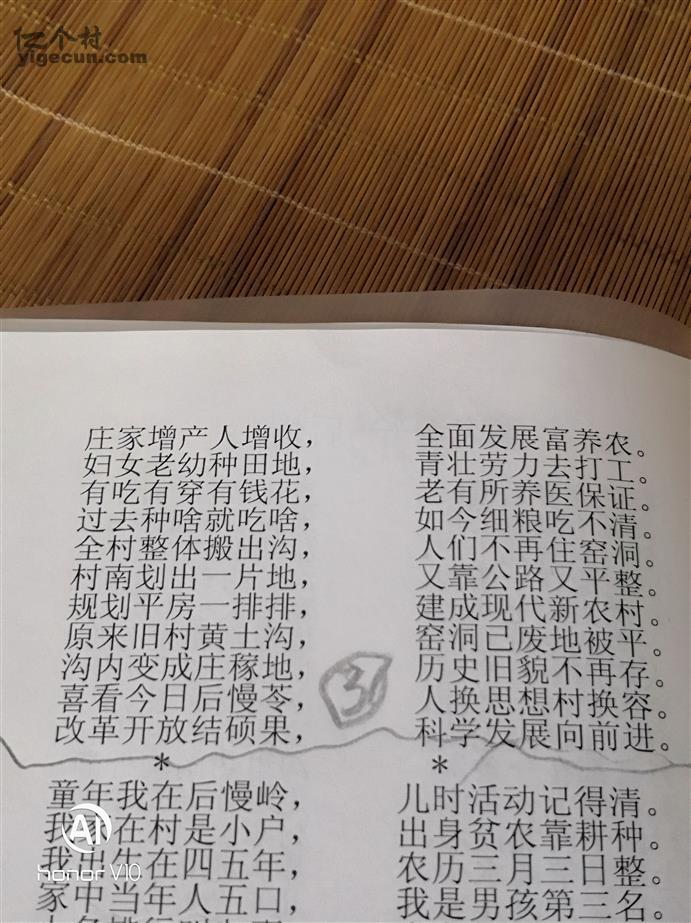 亿个村
yigecun.com
庄家增产人增收，全面发展富养农。
妇女老幼种田地，青壮劳力去打工。
有吃有穿有钱花，老有所养医保证。
过去种啥就吃啥，如今细粮吃不清。
全村整体搬出沟，人们不再住窑洞。
村南划出一片地，又靠公路又平整。
规划平房一排排，建成现代新农村。
原来旧村黄土沟，窑洞已废地被平。
沟内变成庄稼地，历史旧貌不再存。
喜看今日后慢苓，人换思想村换容。
改革开放结硕果，科学发展向前进。
③
* *
童年我在后慢岭，儿时活动记得清。
我 在村是小户，出身贫农靠耕种。
我出生在四五年，农历三月三日整。
家中当年人五口，我是男孩第三名。
AI
honor V10